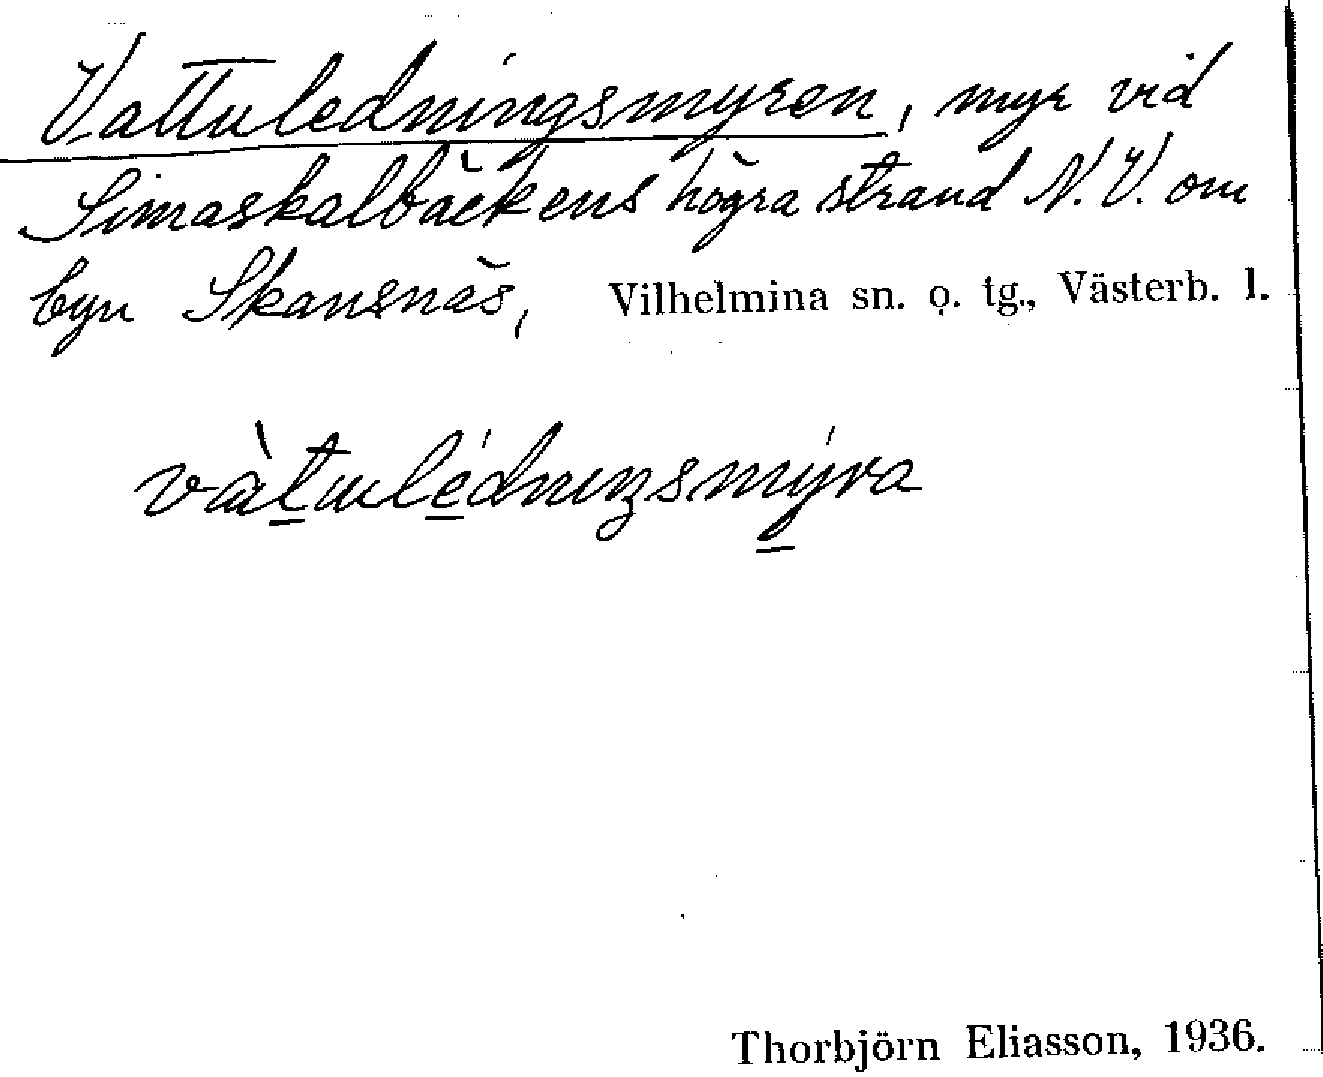 Vattuledningsmyren, myr vid
Simaskalbäckens högra strand N.V. om
byn Skansnäs, Vilhelmina sn. o. tg., Västerb. l.
vàtulédniŋsmýra
Thorbjörn Eliasson, 1936.